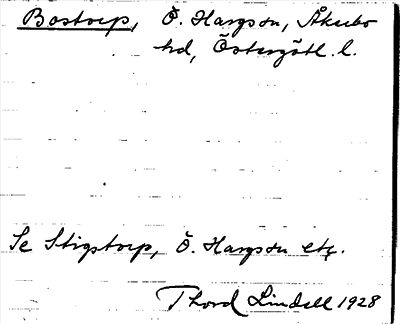 Bostorp, Ö. Hargson, Åkerbo
hd, Östergötl. l.
Se Stigstorp, Ö. Hargson etc.
Thord Lindell 1928